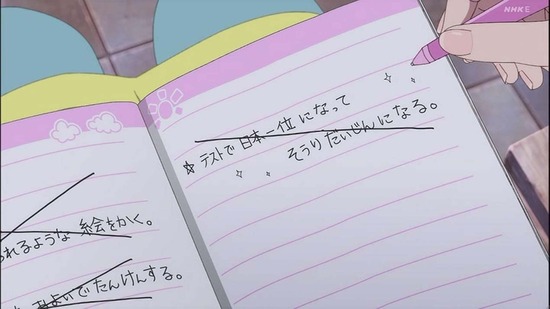 NHK E
られるような 絵をかく。
およいでたんけんする。
☆ テストで日本一位になって
そうりだいじんになる。